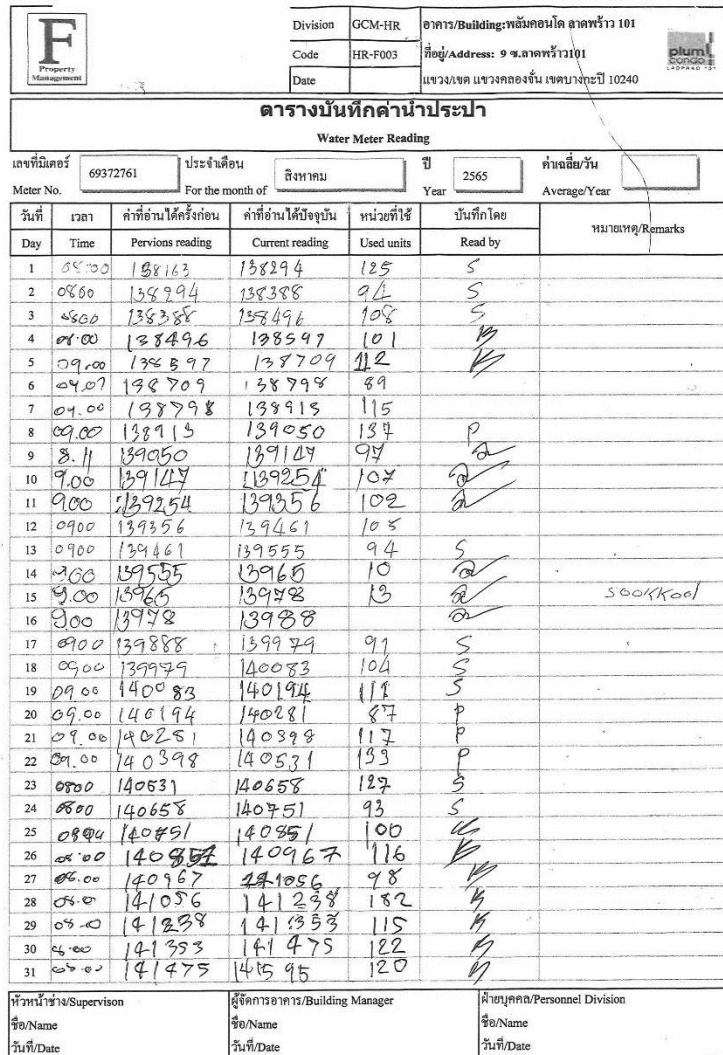 F Property Management
Division GCM-HR อาคาร/Building:พลัมคอนโด ลาดพร้าว 101
Code HR-F003 ที่อยู่/Address: 9 ซ.ลาดพร้าว101
Date แขวง/เขต แขวงคลองจั่น เขตบางกะปิ 10240
plum condo LADPRAO 101
ตารางบันทึกค่าน้ำประปา
Water Meter Reading
เลขที่มิเตอร์ 69372761 ประจำเดือน สิงหาคม ปี 2565 ค่าเฉลี่ย/วัน
Meter No. For the month of Year Average/Year
วันที่ เวลา ค่าที่อ่านได้ครั้งก่อน ค่าที่อ่านได้ปัจจุบัน หน่วยที่ใช้ บันทึกโดย หมายเหตุ/Remarks
Day Time Pervions reading Current reading Used units Read by
1 08:00 138163 138294 125 S
2 0800 138294 138388 94 S
3 0800 138388 138496 108 S
4 08.00 138496 138597 101
5 09.00 138597 138709 112
6 138709 138798 89
7 09.00 138798 138913 115
8 09.00 138913 139050 137 P
9 8.11 139050 139147 97
10 9.00 139147 139254 107
11 9.00 139254 139356 102
12 0900 139356 139461 105
13 0900 139461 139555 94 S
14 9.00 139555 13965 10
15 9.00 13965 13978 13 sookkool
16 9.00 13978 13988
17 0900 139888 139979 91 S
18 0900 139979 140083 104 S
19 09.00 140083 140194 111 S
20 09.00 140194 140281 87 P
21 09.00 140281 140398 117 P
22 09.00 140398 140531 133 P
23 0800 140531 140658 127 S
24 0800 140658 140751 93 S
25 140751 140851 100
26 08.00 140851 140967 116
27 08.00 140967 141056 98
28 08.0 141056 141238 182
29 08.00 141238 141353 115
30 8.00 141353 141475 122
31 08.00 141475 141595 120
หัวหน้าช่าง/Supervison ผู้จัดการอาคาร/Building Manager ฝ่ายบุคคล/Personnel Division
ชื่อ/Name ชื่อ/Name ชื่อ/Name
วันที่/Date วันที่/Date วันที่/Date